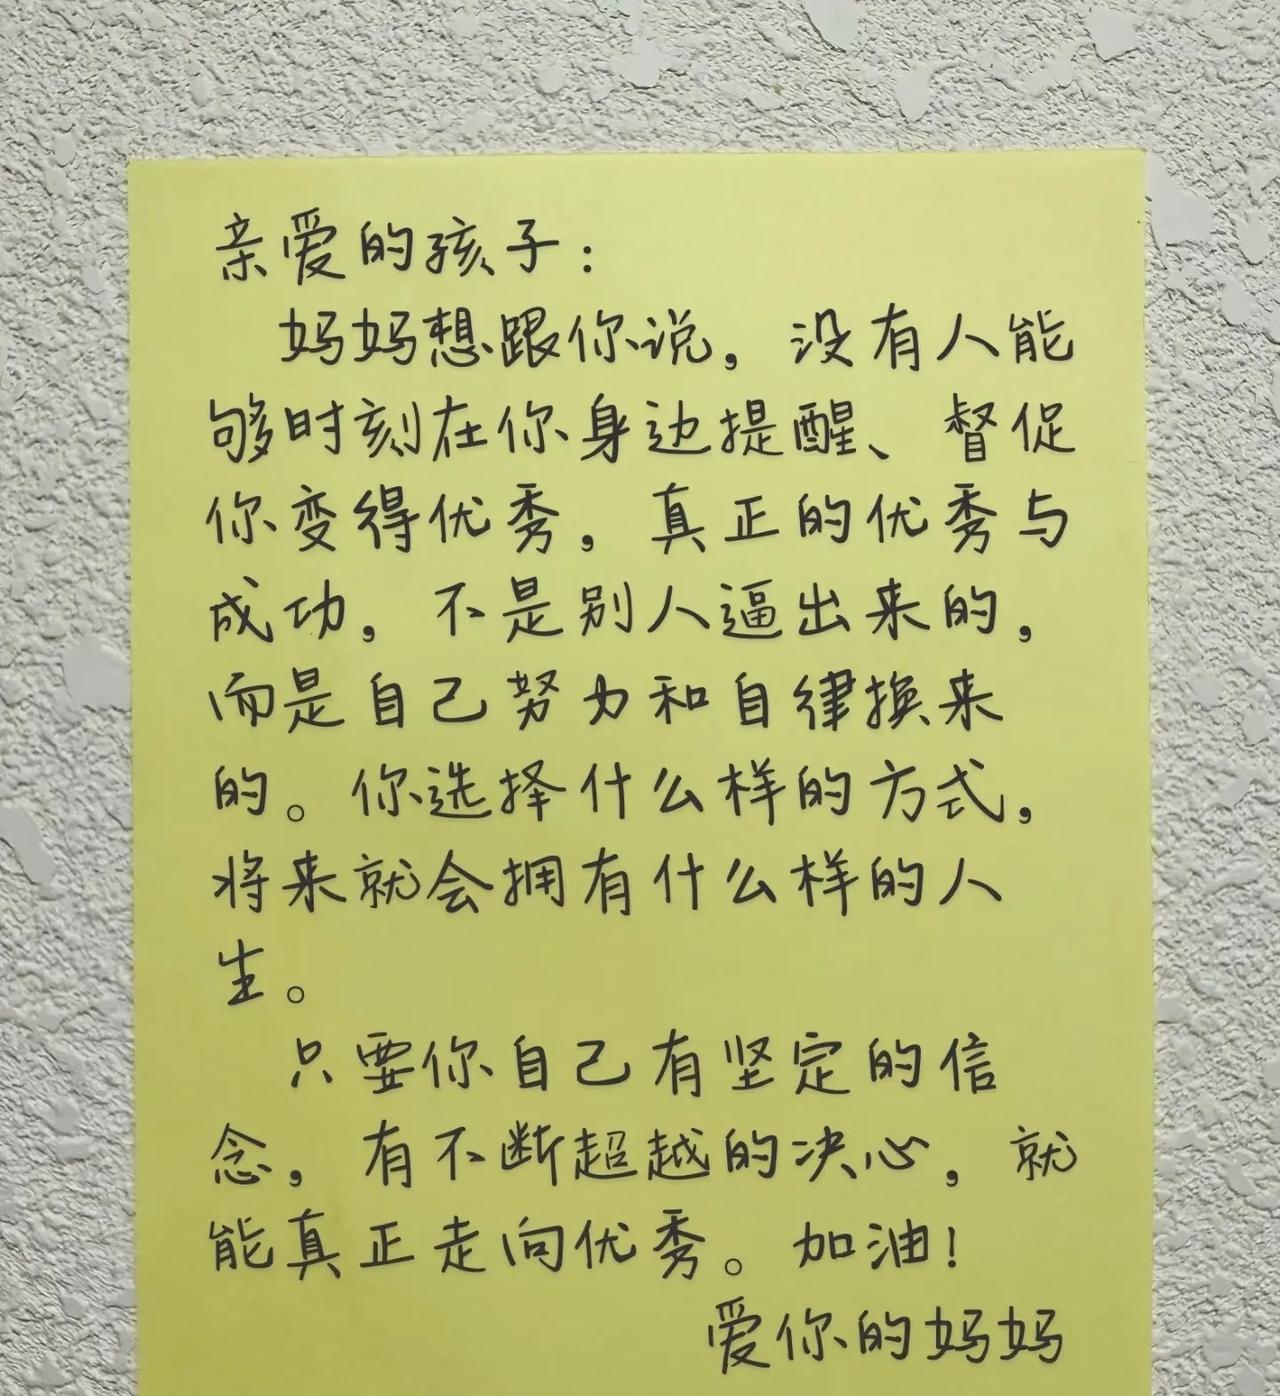 亲爱的孩子：
妈妈想跟你说，没有人能
够时刻在你身边提醒、督促
你变得优秀，真正的优秀与
成功，不是别人逼出来的，
而是自己努力和自律换来
的。你选择什么样的方式，
将来就会拥有什么样的人
生。
只要你自己有坚定的信
念，有不断超越的决心，就
能真正走向优秀。加油！
爱你的妈妈